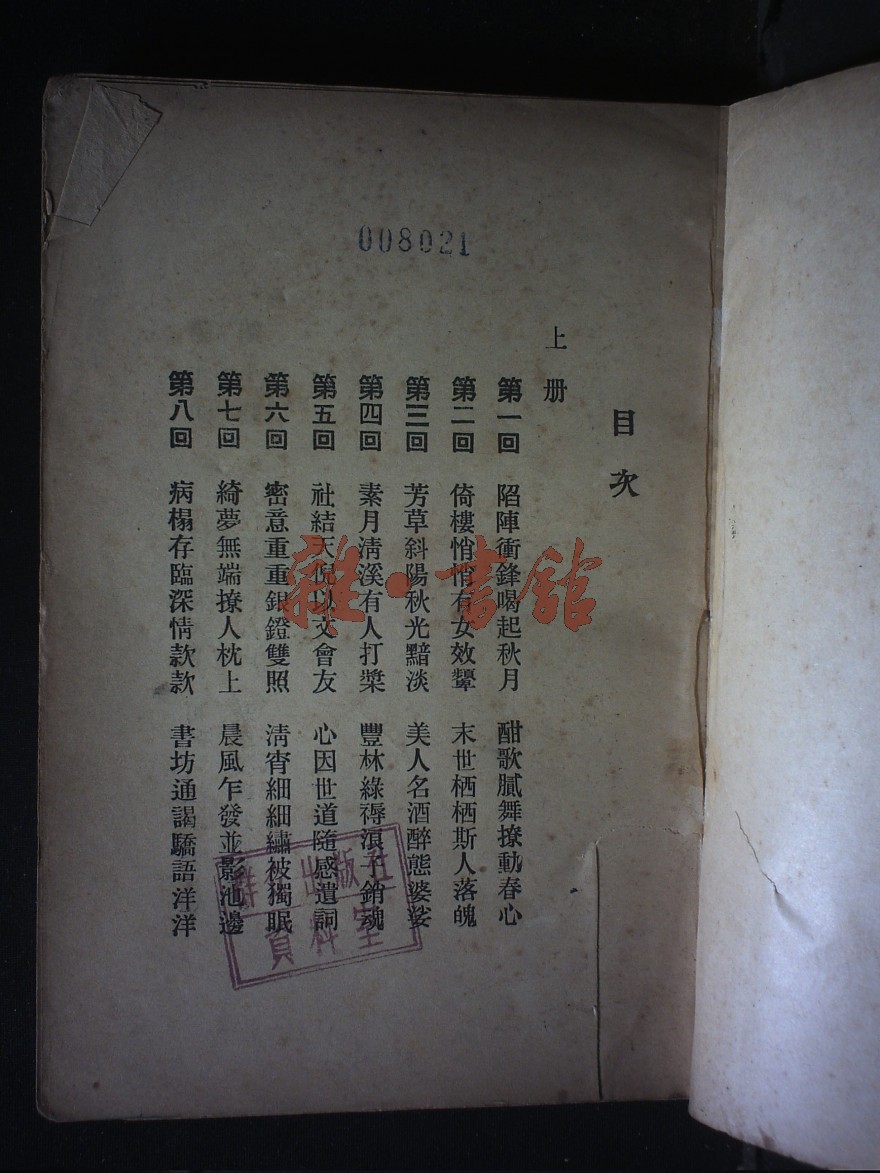 008021
目次
上册
第一回 陷陣衝鋒喝起秋月 酣歌膩舞撩動春心
第二回 倚樓悄悄有女效顰 末世栖栖斯人落魄
第三回 芳草斜陽秋光黯淡 美人名酒醉態婆娑
第四回 素月淸溪有人打槳 豐林綠褥浪子銷魂
第五回 社結天倪以文會友 心因世道隨感遣詞
第六回 密意重重銀鐙雙照 淸宵細細繡被獨眠
第七回 綺夢無端撩人枕上 晨風乍發並影池邊
第八回 病榻存臨深情款款 書坊通謁驕語洋洋
雜·書館
出版社
資料室